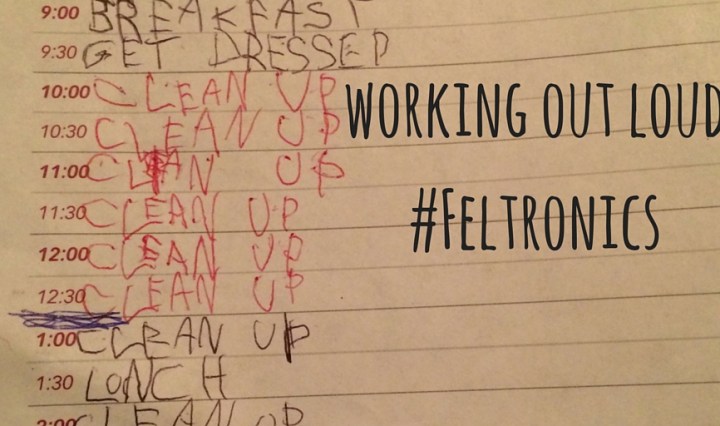 9:00 BREAKFAST
9:30 GET DRESSED
10:00 CLEAN UP
WORKING OUT LOUD
10:30 CLEAN UP
11:00 CLEAN UP
11:30 CLEAN UP
#FELTRONICS
12:00 CLEAN UP
12:30 CLEAN UP
1:00 CLEAN UP
1:30 LONCH
2:00 CLEAN UP